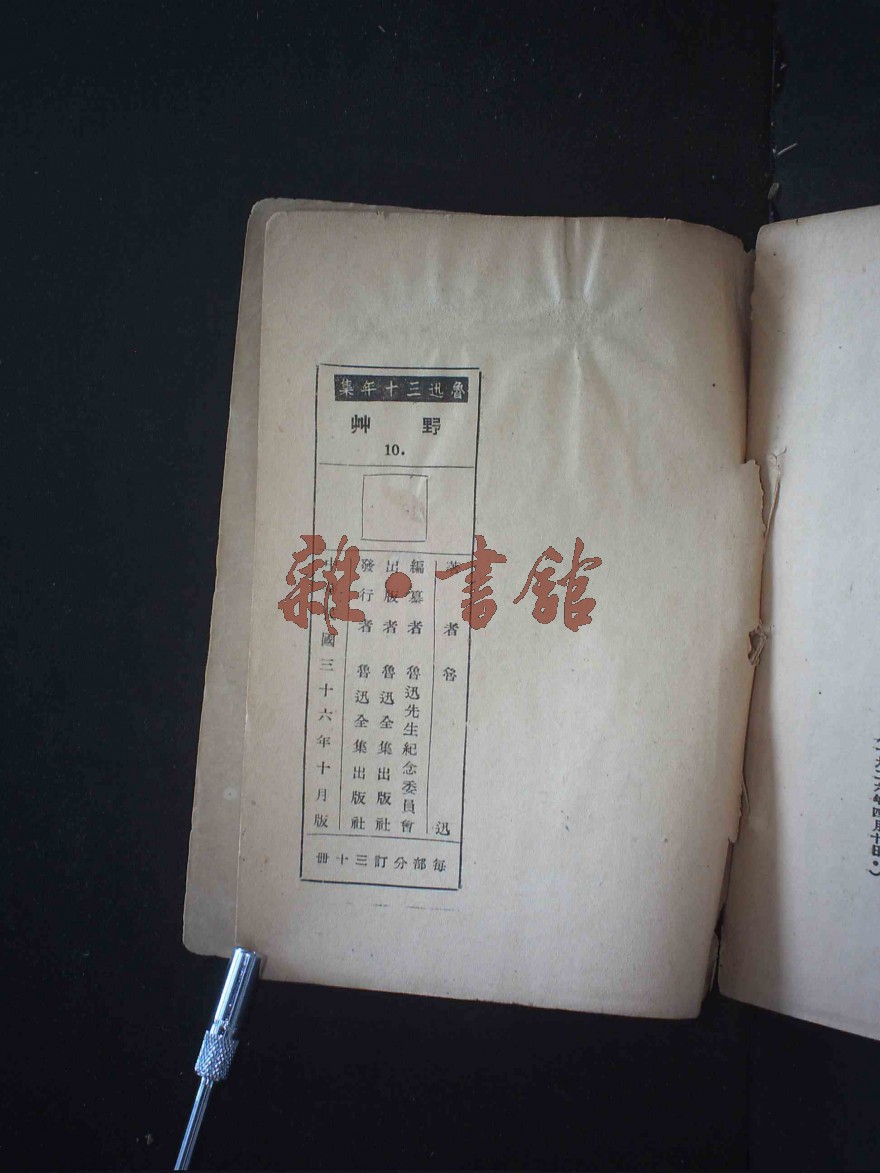 魯迅三十年集
野艸
10.
著者魯迅
編纂者魯迅先生紀念委員會
出版者魯迅全集出版社
發行者魯迅全集出版社
中華民國三十六年十月版
每部分訂三十冊
雜·書館